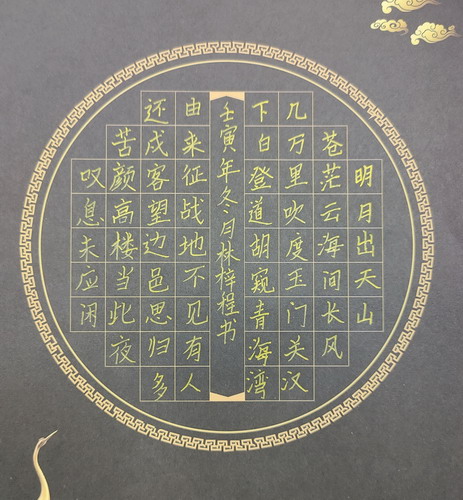 明月出天山
苍茫云海间长风
几万里吹度玉门关汉
下白登道胡窥青海湾
壬寅年冬月林梓程书
由来征战地不见有人
还戍客望边邑思归多
苦颜高楼当此夜
叹息未应闲